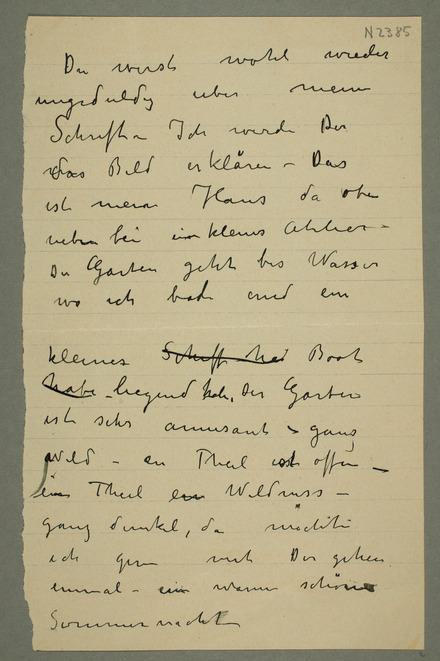 N2385
Du wirst wohl wieder
ungeduldig über meine
Schrift – Ich werde Dir
das Bild erklären – Das
ist mein Haus da oben
neben bei ein kleines Atelier –
Der Garten geht bis Wasser
wo ich bade und ein
kleines Schiff hab Boot
habe liegend hab, Der Garten
ist sehr amusant – ganz
wild – ein Theil ist offen –
ein Theil ein Wildniss –
ganz dunkel, da möchte
ich gern mit Dir gehen
einmal – ein warme schöne
Sommernacht